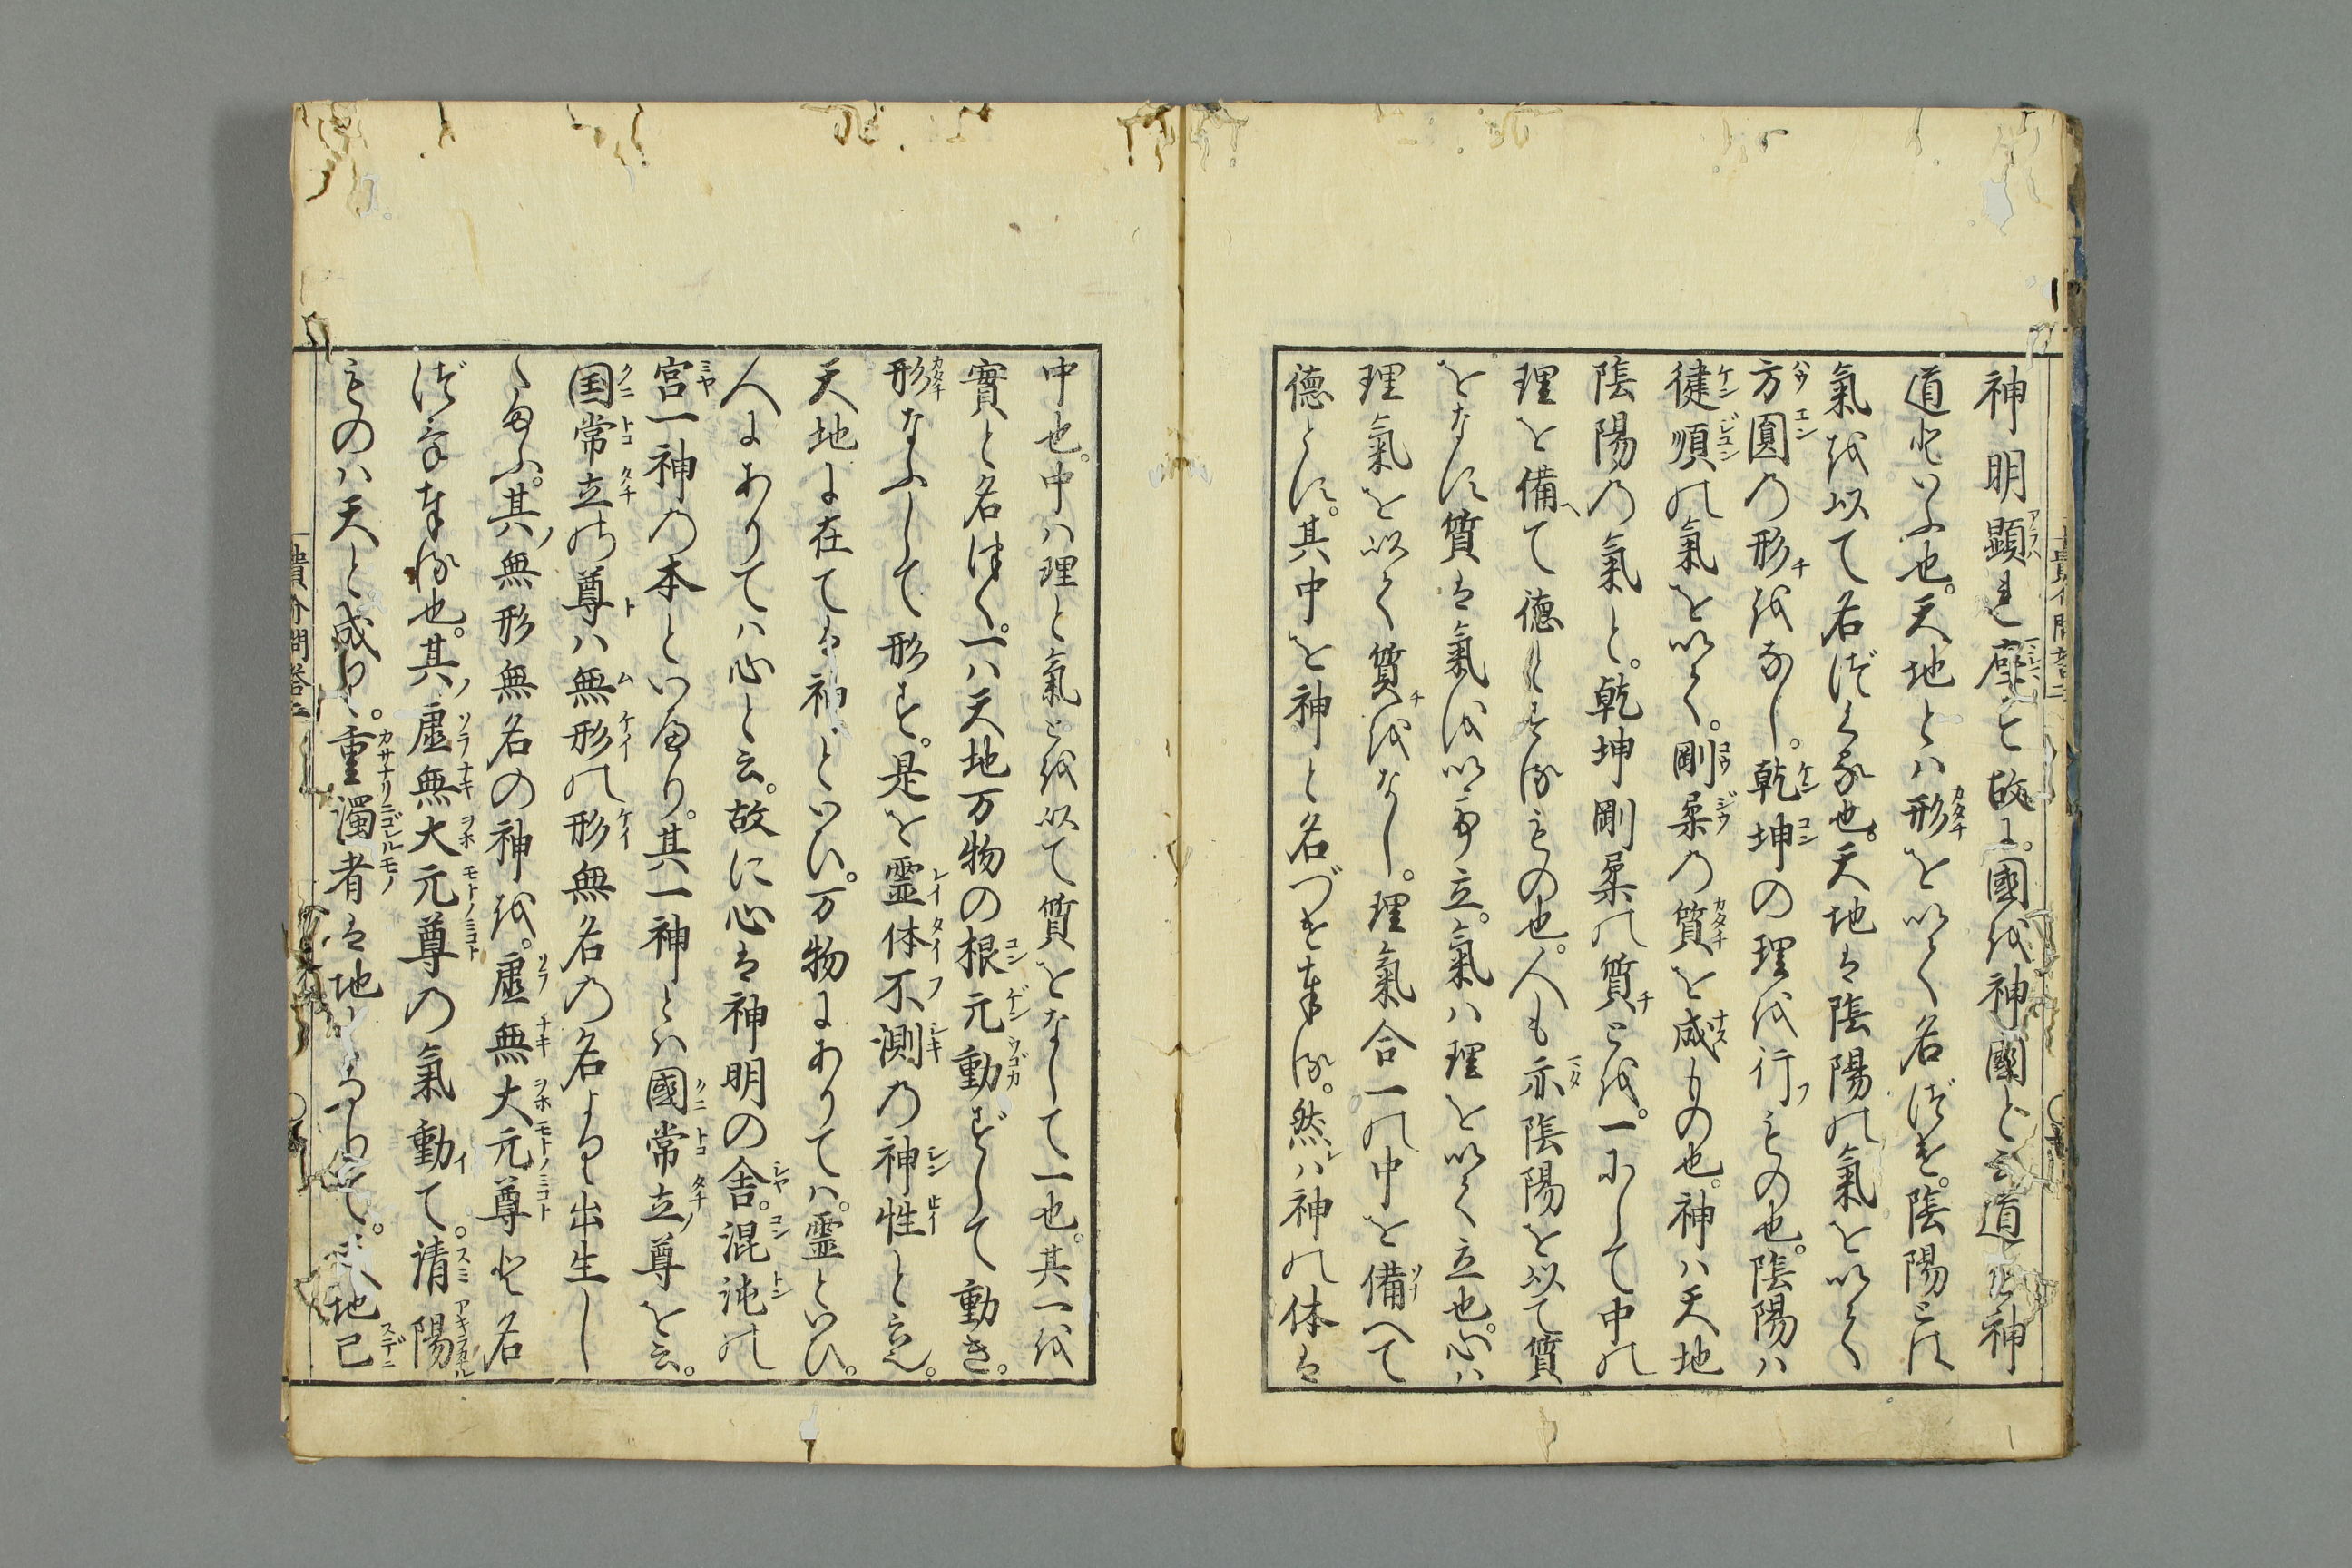 神明顕れ座と故に國を神國と云道を神
道といふ也。天地とハ形を以て名づけ。陰陽とは
氣を以て名づくる也。天地は陰陽の氣を以て
方圓の形をなし。乾坤の理を行ふもの也。陰陽ハ
健順の氣を以て。剛柔の質を成もの也。神ハ天地
陰陽の氣と。乾坤剛柔の質とを。一にして中の
理を備て徳とするもの也。人も亦陰陽を以て質
をなす質は氣を以て立。氣ハ理を以て立也。心ハ
理氣を以て質をなし。理氣合一の中を備へて
徳とす。其中を神と名づけ奉る。然ハ神の体は
中也。中ハ理と氣とを以て質をなして一也。其一を
實と名づく。一ハ天地万物の根元動ずして動き。
形なふして形す。是を霊体不測の神性と云。
天地に在ては神といい。万物にありてハ。霊といひ。
人にありてハ心と云。故に心は神明の舎。混沌の
宮一神の本といへり。其一神とハ國常立ノ尊を云。
国常立の尊ハ無形の形無名の名より出生し
たまふ。其ノ無形無名の神を。虚無大元尊と名
づけ奉る也。其ノ虚無大元尊の氣動て。清陽
ものハ天と成り。重濁者は地となりて。天地已